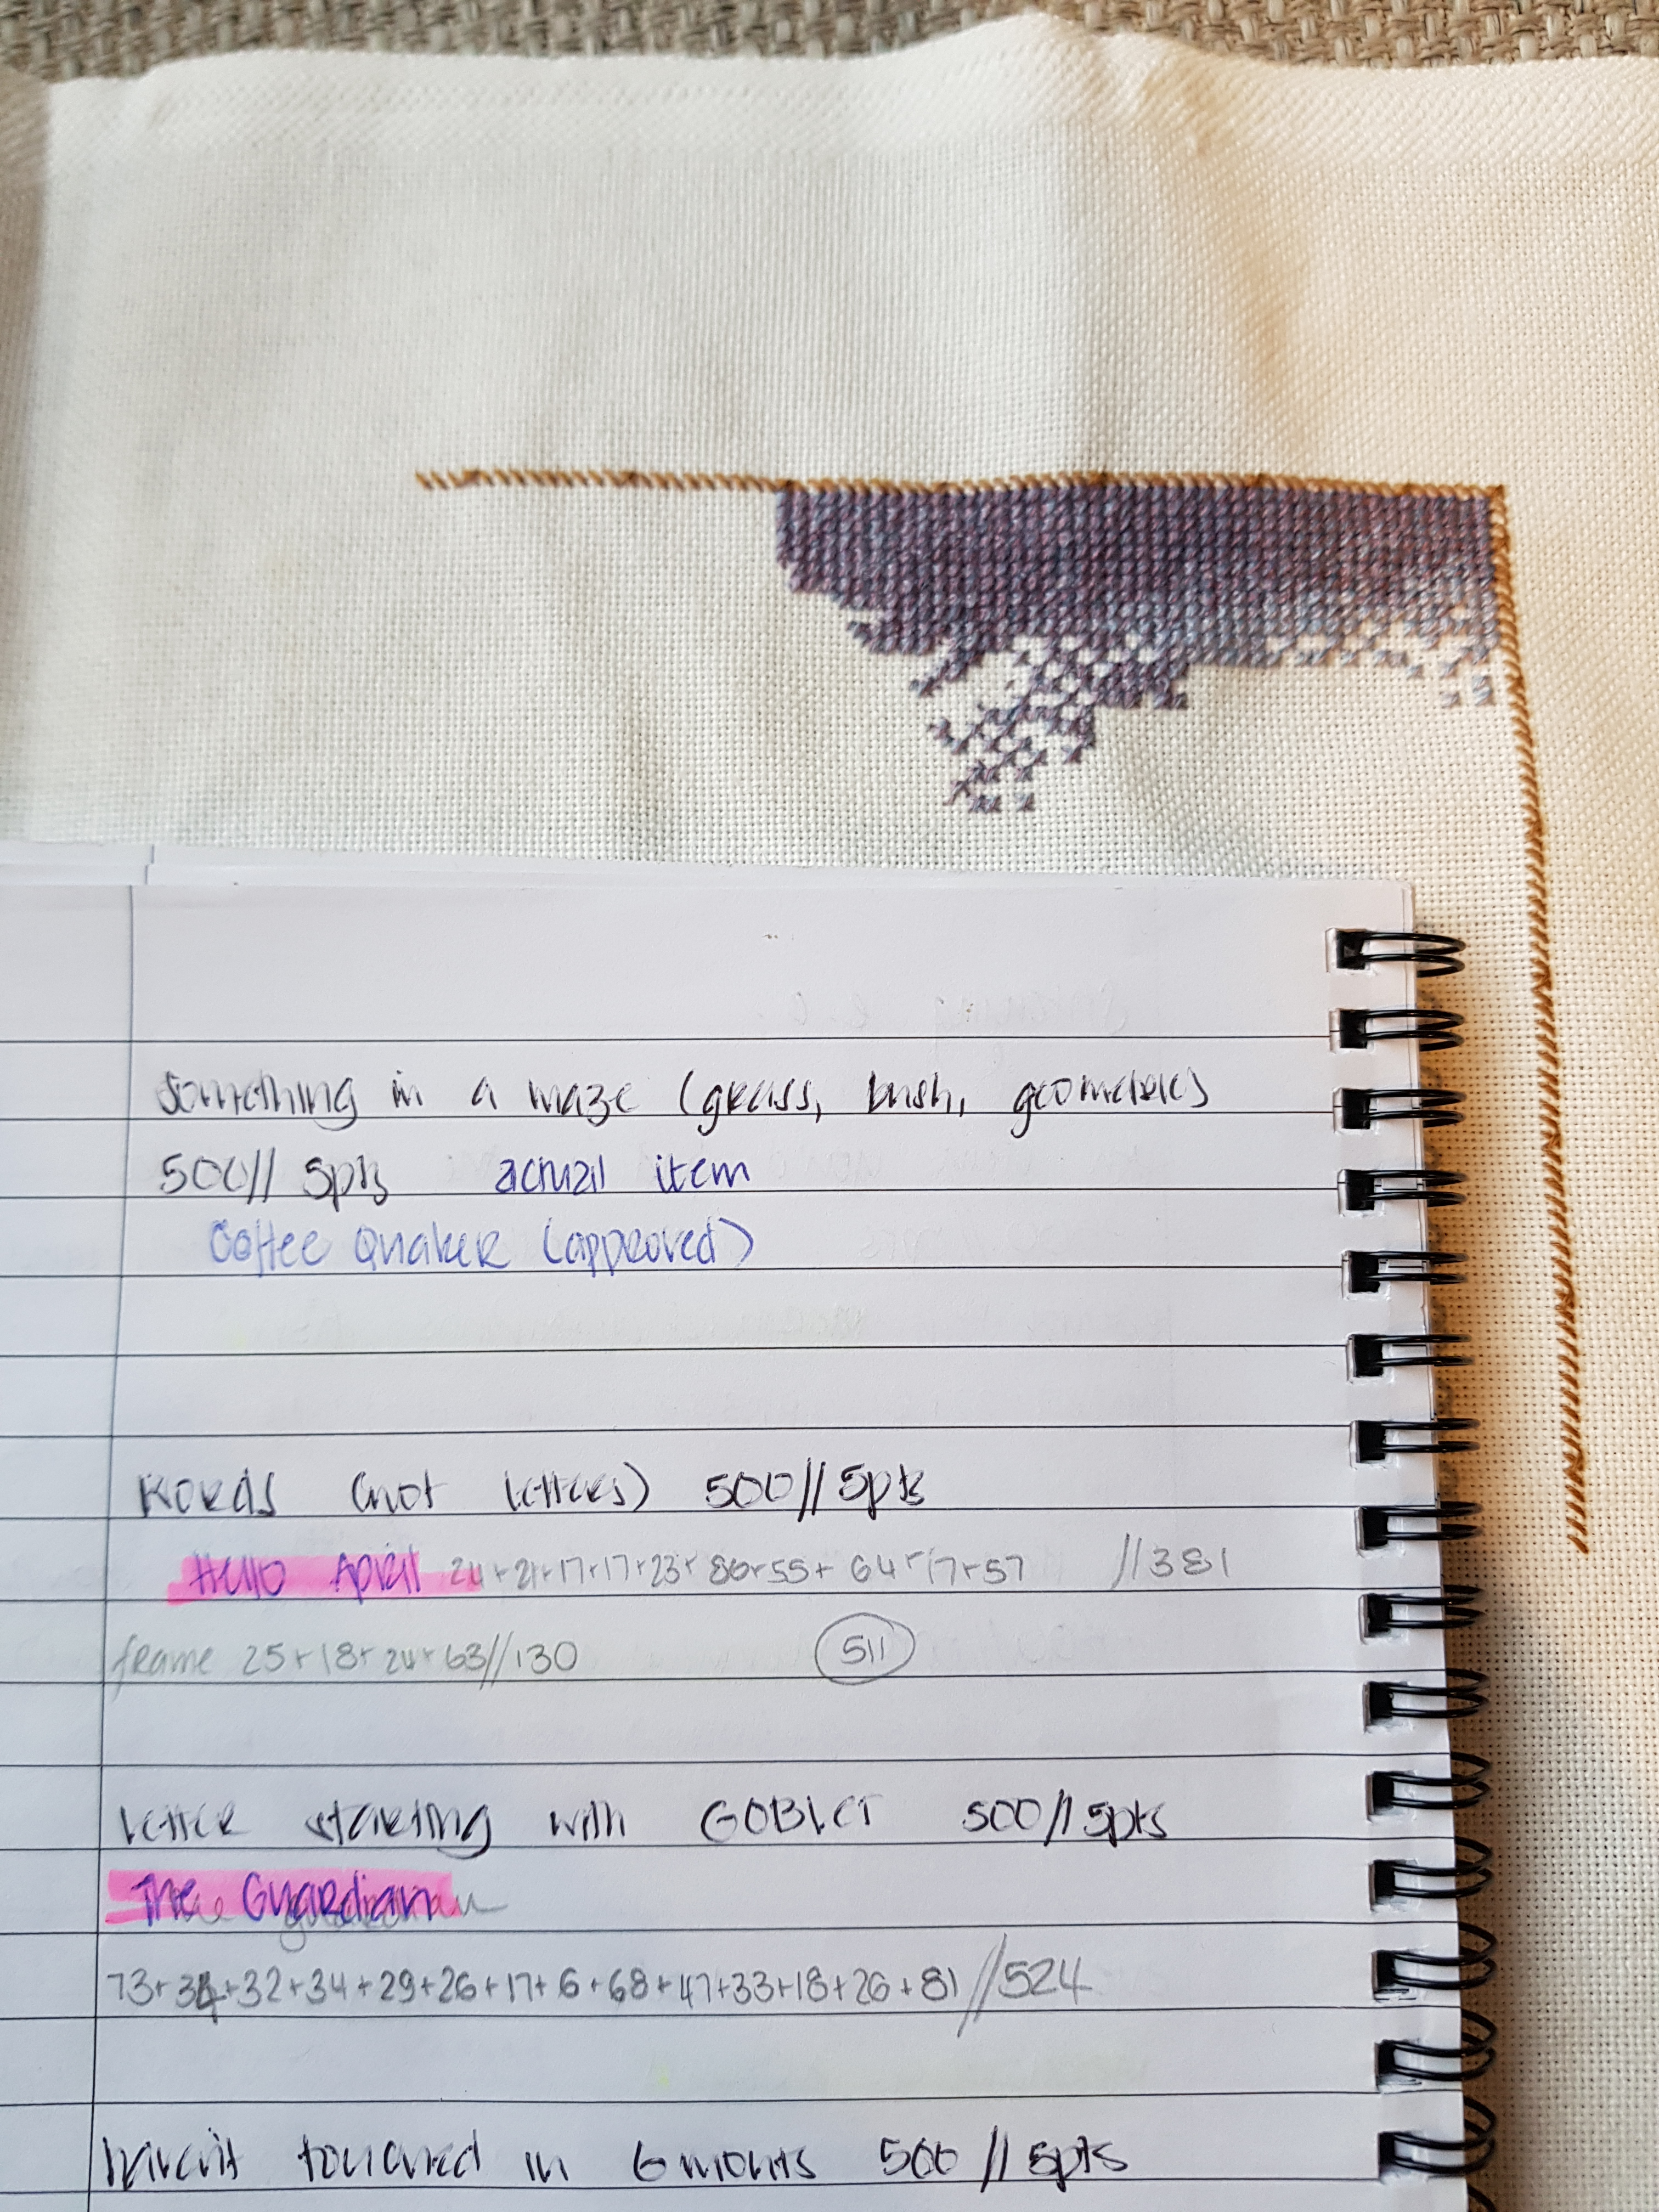 Something in a maze (grass, bush, geometric)
500// 5pts actual item
Coffee Quaker (approved)
Words (not letters) 500//5pts
Hello April 24+21+17+17+23+86+55+64+17+57 //381
frame 25+18+24+63//130 511
letter starting with GOBLET 500//5pts
The Guardian
73+34+32+34+29+26+17+6+68+47+33+18+26+81//524
haven't touched in 6 months 500//5pts